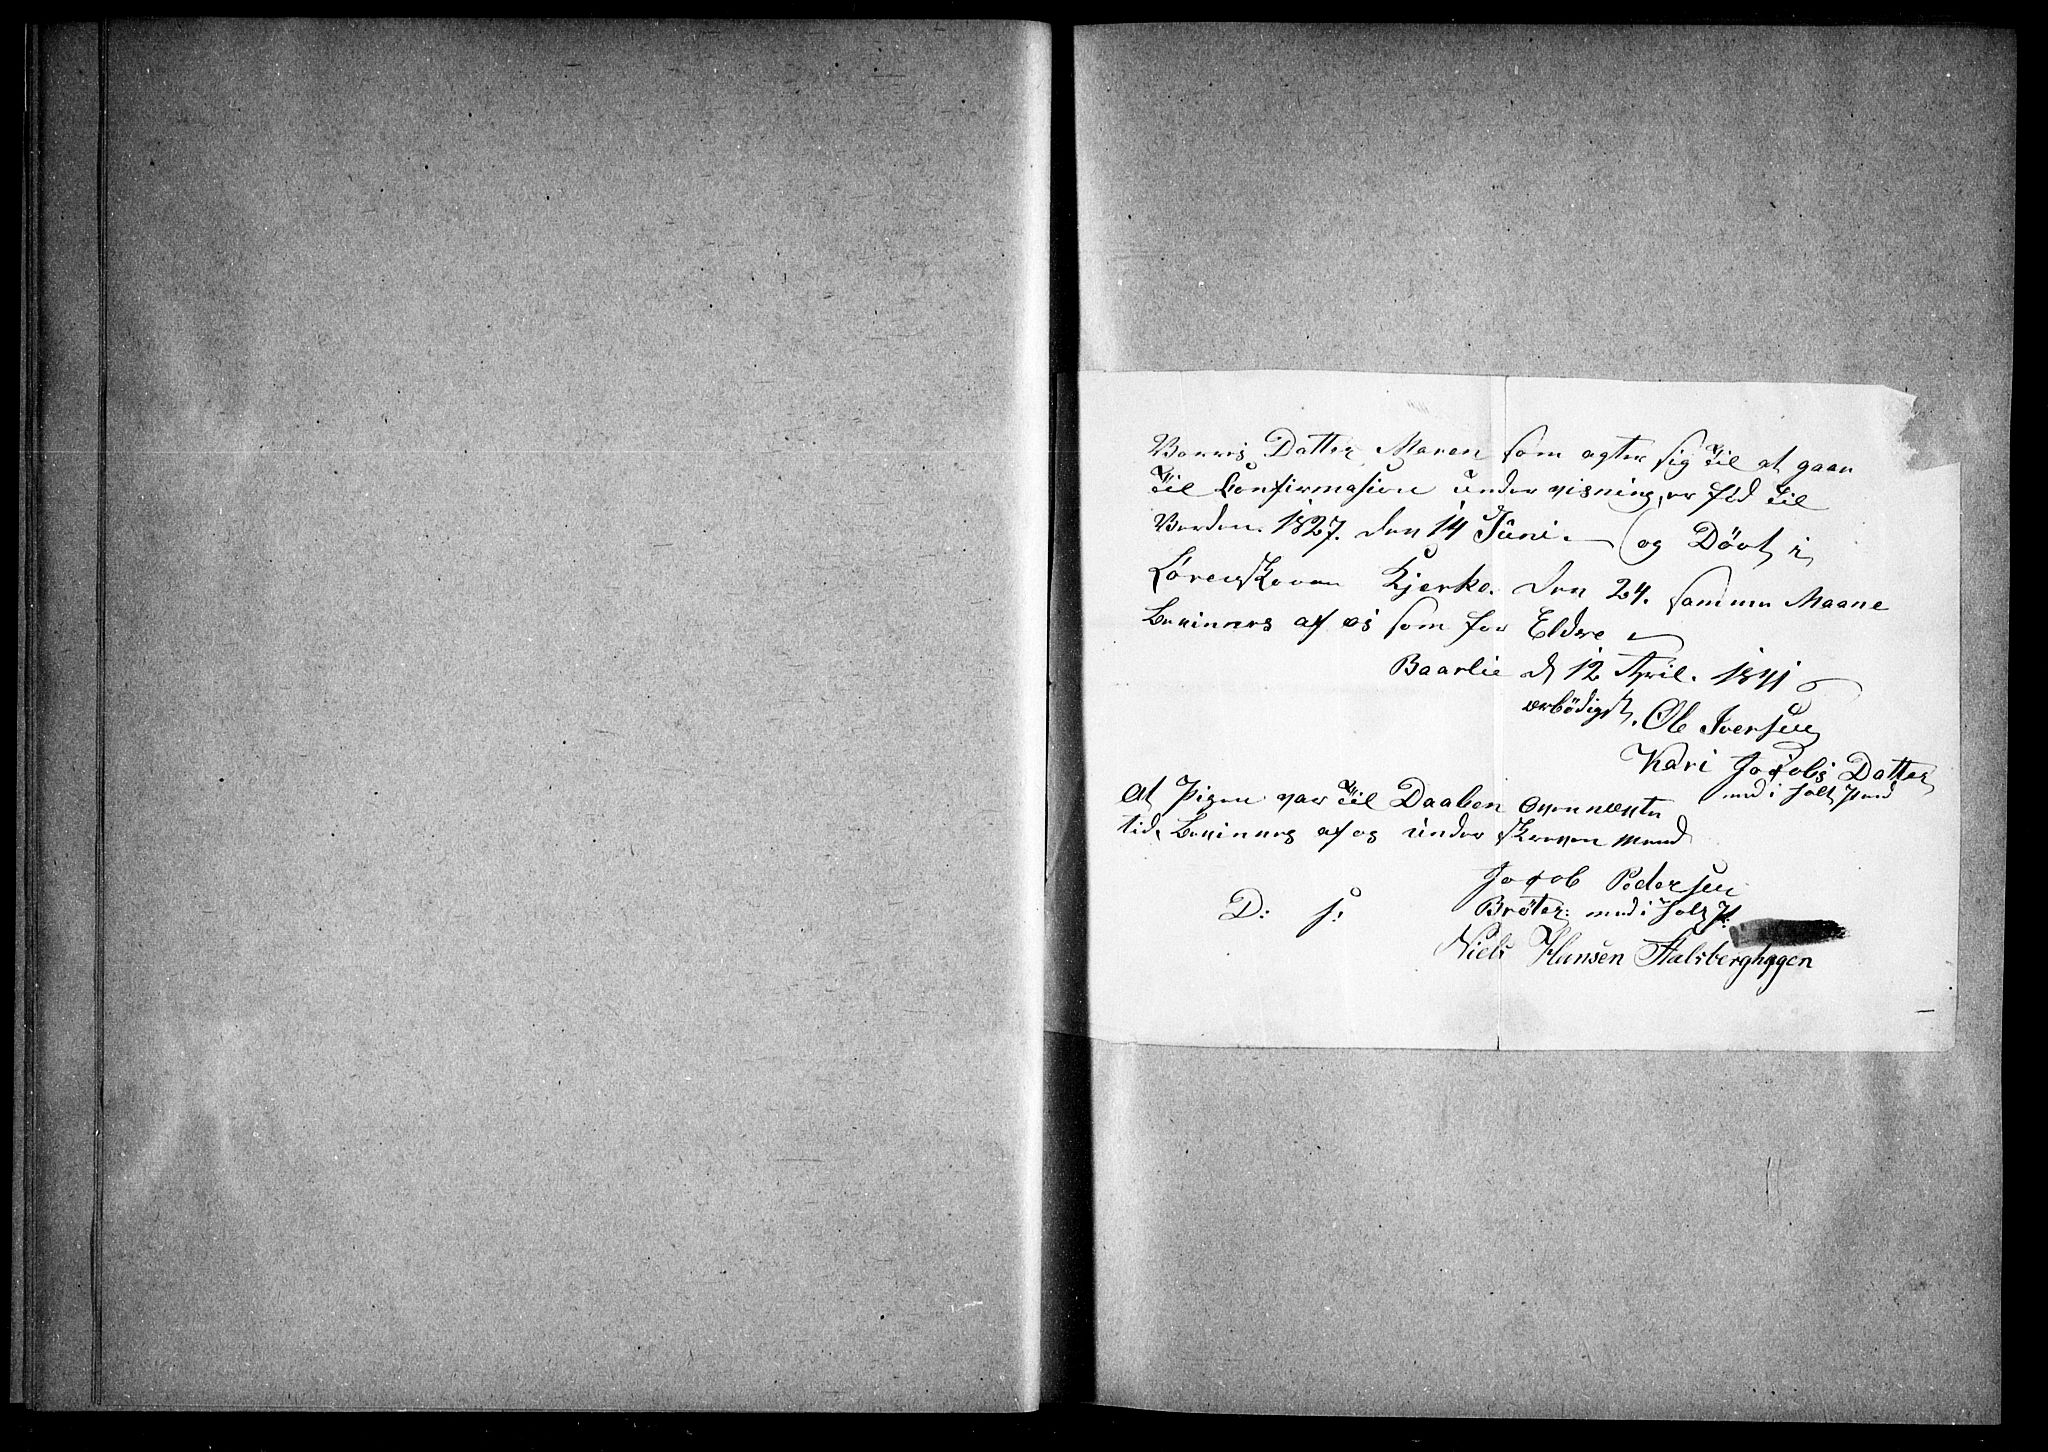 Vorres Datter Maren som agter sig til at gaar
til Confirmasion undervisning, er fød til
Verden. 1827. den 14 Juni. og Dövt i
Lørenskoven Kjerke. den 24. samme Maane
Bevinnes af os som for Eldre
Baarlie d 12 April. 1841
ærbödigst. Ole Iversen
Kari Jacobs Datter
med i holt Pend
At Pigen var til Daaben ovennevnte
tid, Bevinnes af os under skreven mend
Jacob Pedersen
D: s: Bröter: med i holt P:
Niels Hansen Stalsberghagen